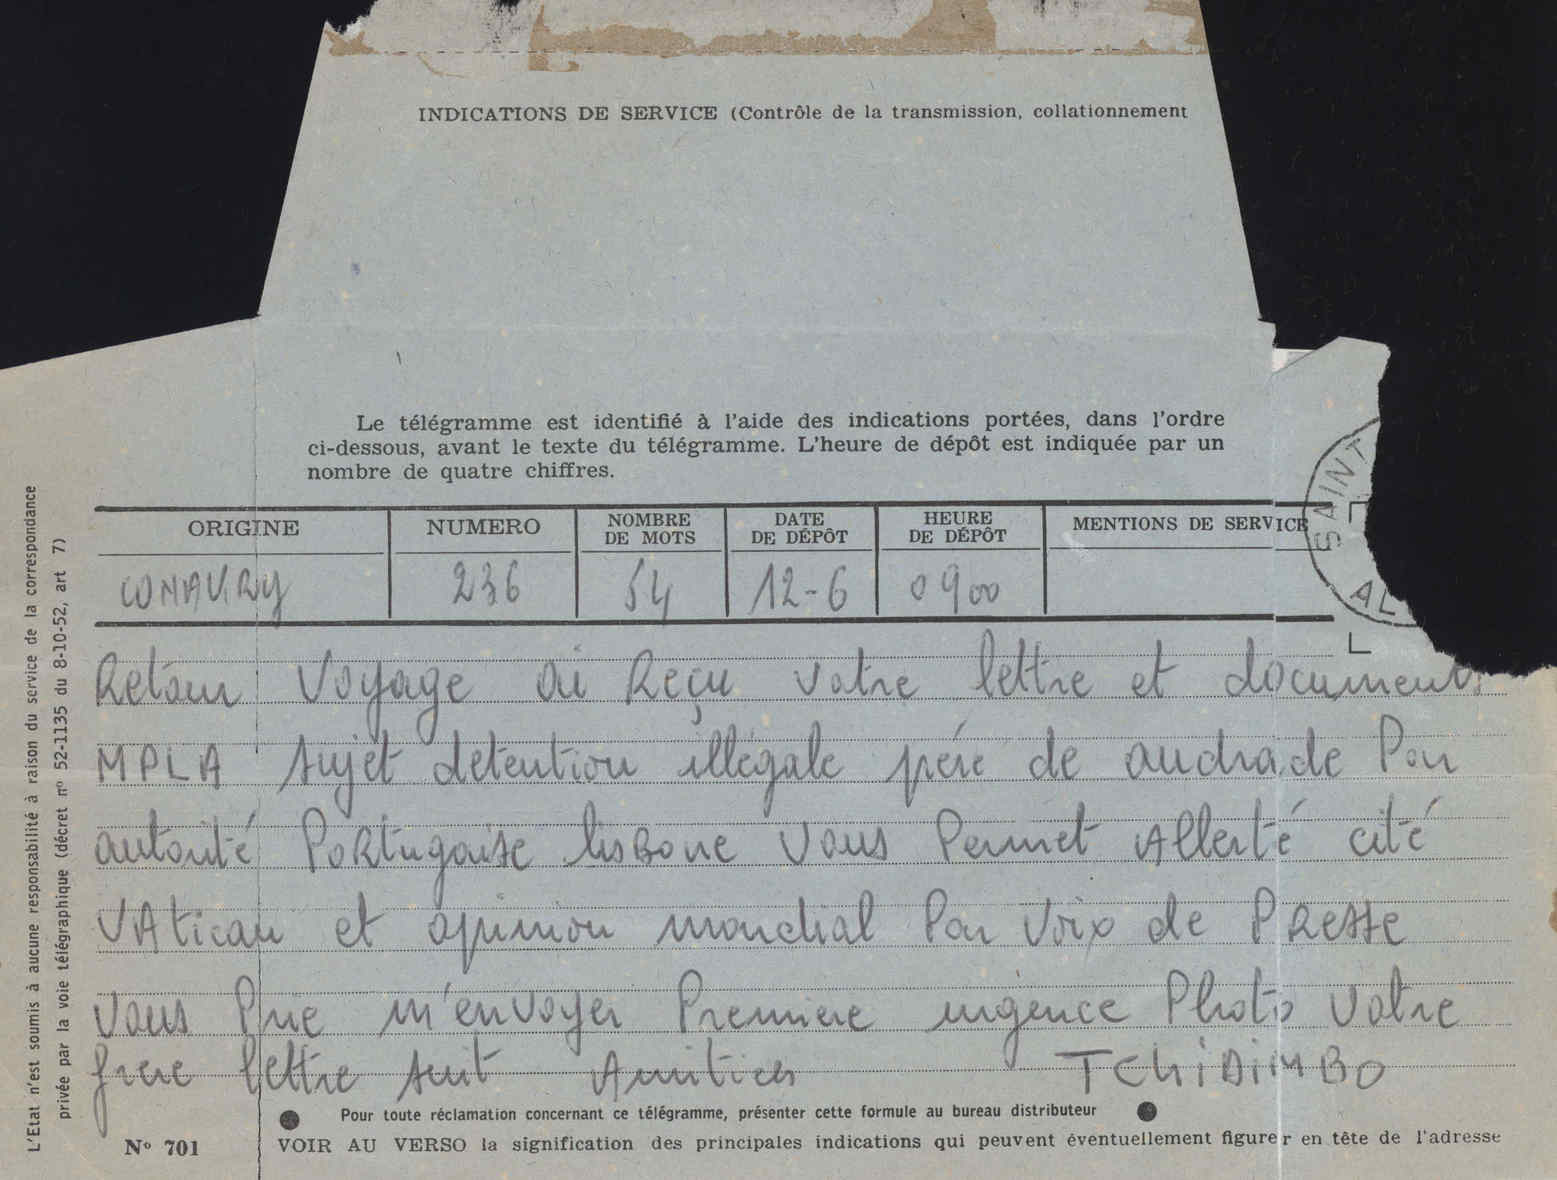 INDICATIONS DE SERVICE (Contrôle de la transmission, collationnement
Le télégramme est identifié à l'aide des indications portées, dans l'ordre
ci-dessous, avant le texte du télégramme. L'heure de dépôt est indiquée par un
nombre de quatre chiffres.
ORIGINE NUMERO NOMBRE DE MOTS DATE DE DÉPÔT HEURE DE DÉPÔT MENTIONS DE SERVICE
CONAKRY 236 54 12-6 0900
SAINT
AL
Retour Voyage ai Reçu votre lettre et documents
MPLA sujet detention illégale père de andrade Par
autorité Portugaise lisbone Vous Permet Allerté cité
VAtican et opinion mondial Par Voix de PResse
Vous Prie m'envoyer Premiere urgence Photo Votre
frere lettre suit Amities TCHIDIMBO
Pour toute réclamation concernant ce télégramme, présenter cette formule au bureau distributeur
N° 701 VOIR AU VERSO la signification des principales indications qui peuvent éventuellement figurer en tête de l'adresse
L'Etat n'est soumis à aucune responsabilité à raison du service de la correspondance
privée par la voie télégraphique (décret n° 52-1135 du 8-10-52, art 7)